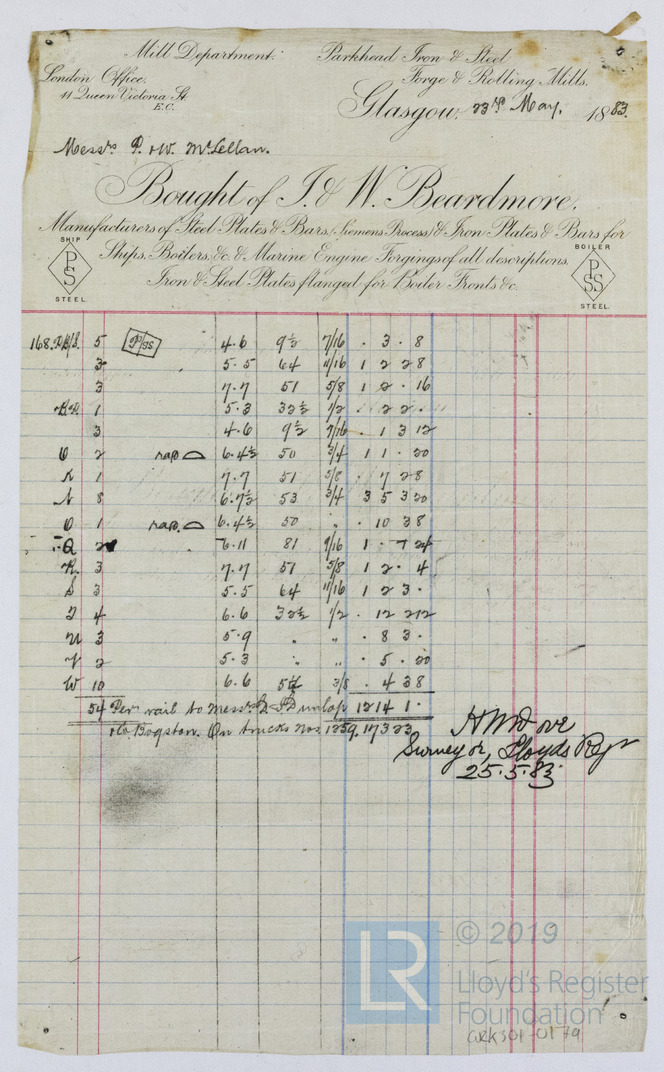 Mill Department. Parkhead Iron & Steel
London Office. Forge & Rolling Mills.
11 Queen Victoria St
E.C.
Glasgow, 23rd May, 1883.
Messrs P. & W. McLellan.
Bought of I. & W. Beardmore.
Manufacturers of Steel Plates & Bars, (Siemens Process) & Iron Plates & Bars for
Ships, Boilers, &c. & Marine Engine Forgings of all descriptions.
Iron & Steel Plates flanged for Boiler Fronts &c.
SHIP PS STEEL
BOILER PSS STEEL
168 5 4.6 9½ 7/16 . 3 . 8
3 5.5 64 11/16 1 2 2 8
3 7.7 51 5/8 1 2 . 16
1 5.3 32½ 1/2 . 2 2 .
3 4.6 9½ 7/16 . 1 3 12
O 2 6.4½ 50 3/4 1 1 . 20
K 1 7.7 51 5/8 . 7 2 8
N 8 6.7½ 53 3/4 3 5 3 20
O 1 6.4½ 50 " . 10 3 8
Q 2 6.11 81 9/16 1 . 7 24
R 3 7.7 51 5/8 1 2 . 4
S 3 5.5 64 11/16 1 2 3 .
T 4 6.6 32½ 1/2 . 12 2 12
U 3 5.9 " " . 8 3 .
V 2 5.3 " " . 5 . 20
W 10 6.6 3/8 . 4 3 8
54 Per rail to Messrs Dunlop 12 14 1 .
& Co Bogston. On trucks nos. 1259. 117323
H W Dove
Surveyor, Lloyds Regr
25.5.83
© 2019
LR Lloyd's Register
Foundation
ARK501-0179